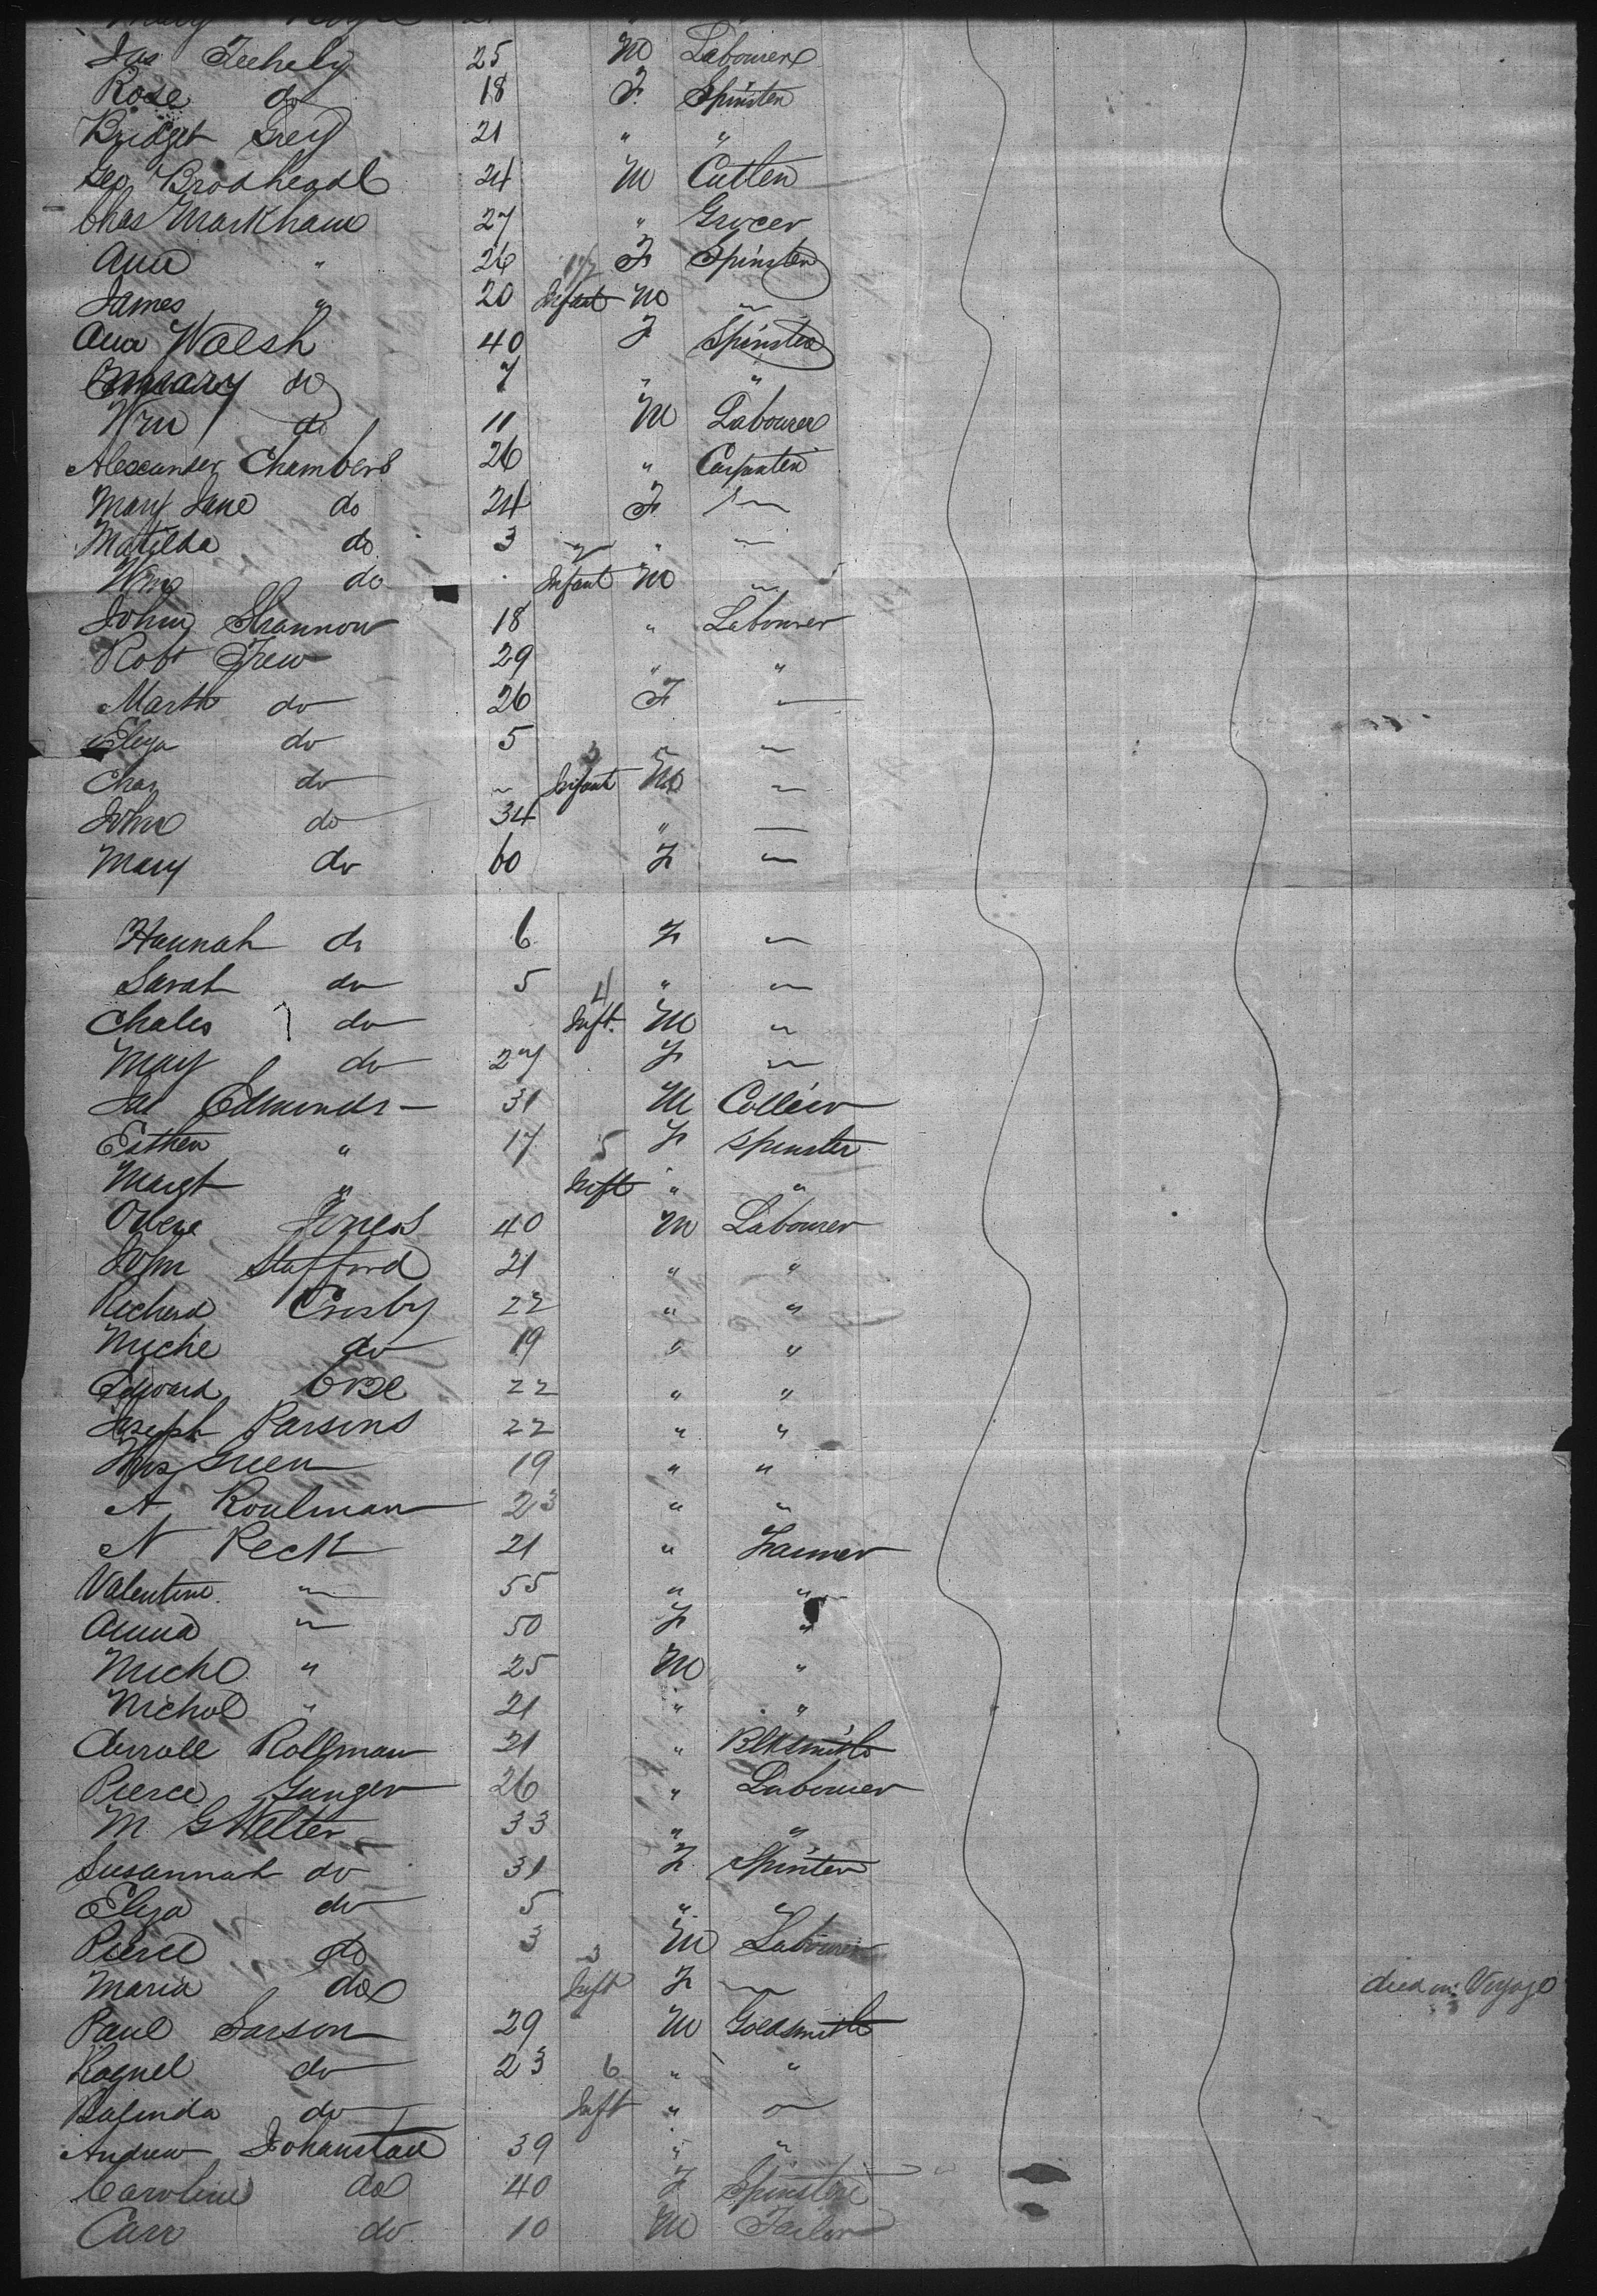 Mary
Jas Feehely 25 M Labourer
Rose do 18 F Spinster
Bridget Grey 21 " "
Geo Brodhead 24 M Cutter
Chas Markham 27 " Grocer
Ann " 26 F Spinster
James " 20 Infant M "
Ann Walsh 40 F Spinster
Mary do 7 " "
Wm do 11 M Labourer
Alexander Chambers 26 " Carpenter
Mary Jane do 24 F "
Matilda do 3 " "
Wm do Infant M "
John Shannon 18 " Labourer
Robt Frew 29 " "
Marth do 26 F "
Eliza do 5 " "
Chas do " Infant M "
John do 34 " —
Mary do 60 F "
Hannah do 6 F "
Sarah do 5 " "
Chales do 4 Inft. M "
Mary do 27 F "
Jas Edmunds 31 M Collier
Esther " 17 F Spinster
Margt " 5 Inft " "
Owen Jones 40 M Labourer
John Stafford 21 " "
Richard Crosby 22 " "
Miche do 19 " "
Edward Cox 22 " "
Joseph Parsons 22 " "
Thos Green 19 " "
A Koulman 23 " "
N Peck 21 " Farmer
Valentine " 55 " "
Anna " 50 F "
Michl " 25 M "
Nichol " 21 " "
Rollman 21 " Blksmith
Pierce Gunger 26 " Labourer
M G Welter 33 " "
Susannah do 31 F Spinter
Eliza do 5 " "
Pierce do 3 M Labourer
Maria do 3 Inft F " died on Voyage
Paul Larson 29 M Goldsmith
Ragnel do 23 " "
Balinda do 6 Inft " "
Andrew Johanstall 39 " "
Caroline do 40 F Spinster
Carr do 10 M Tailor